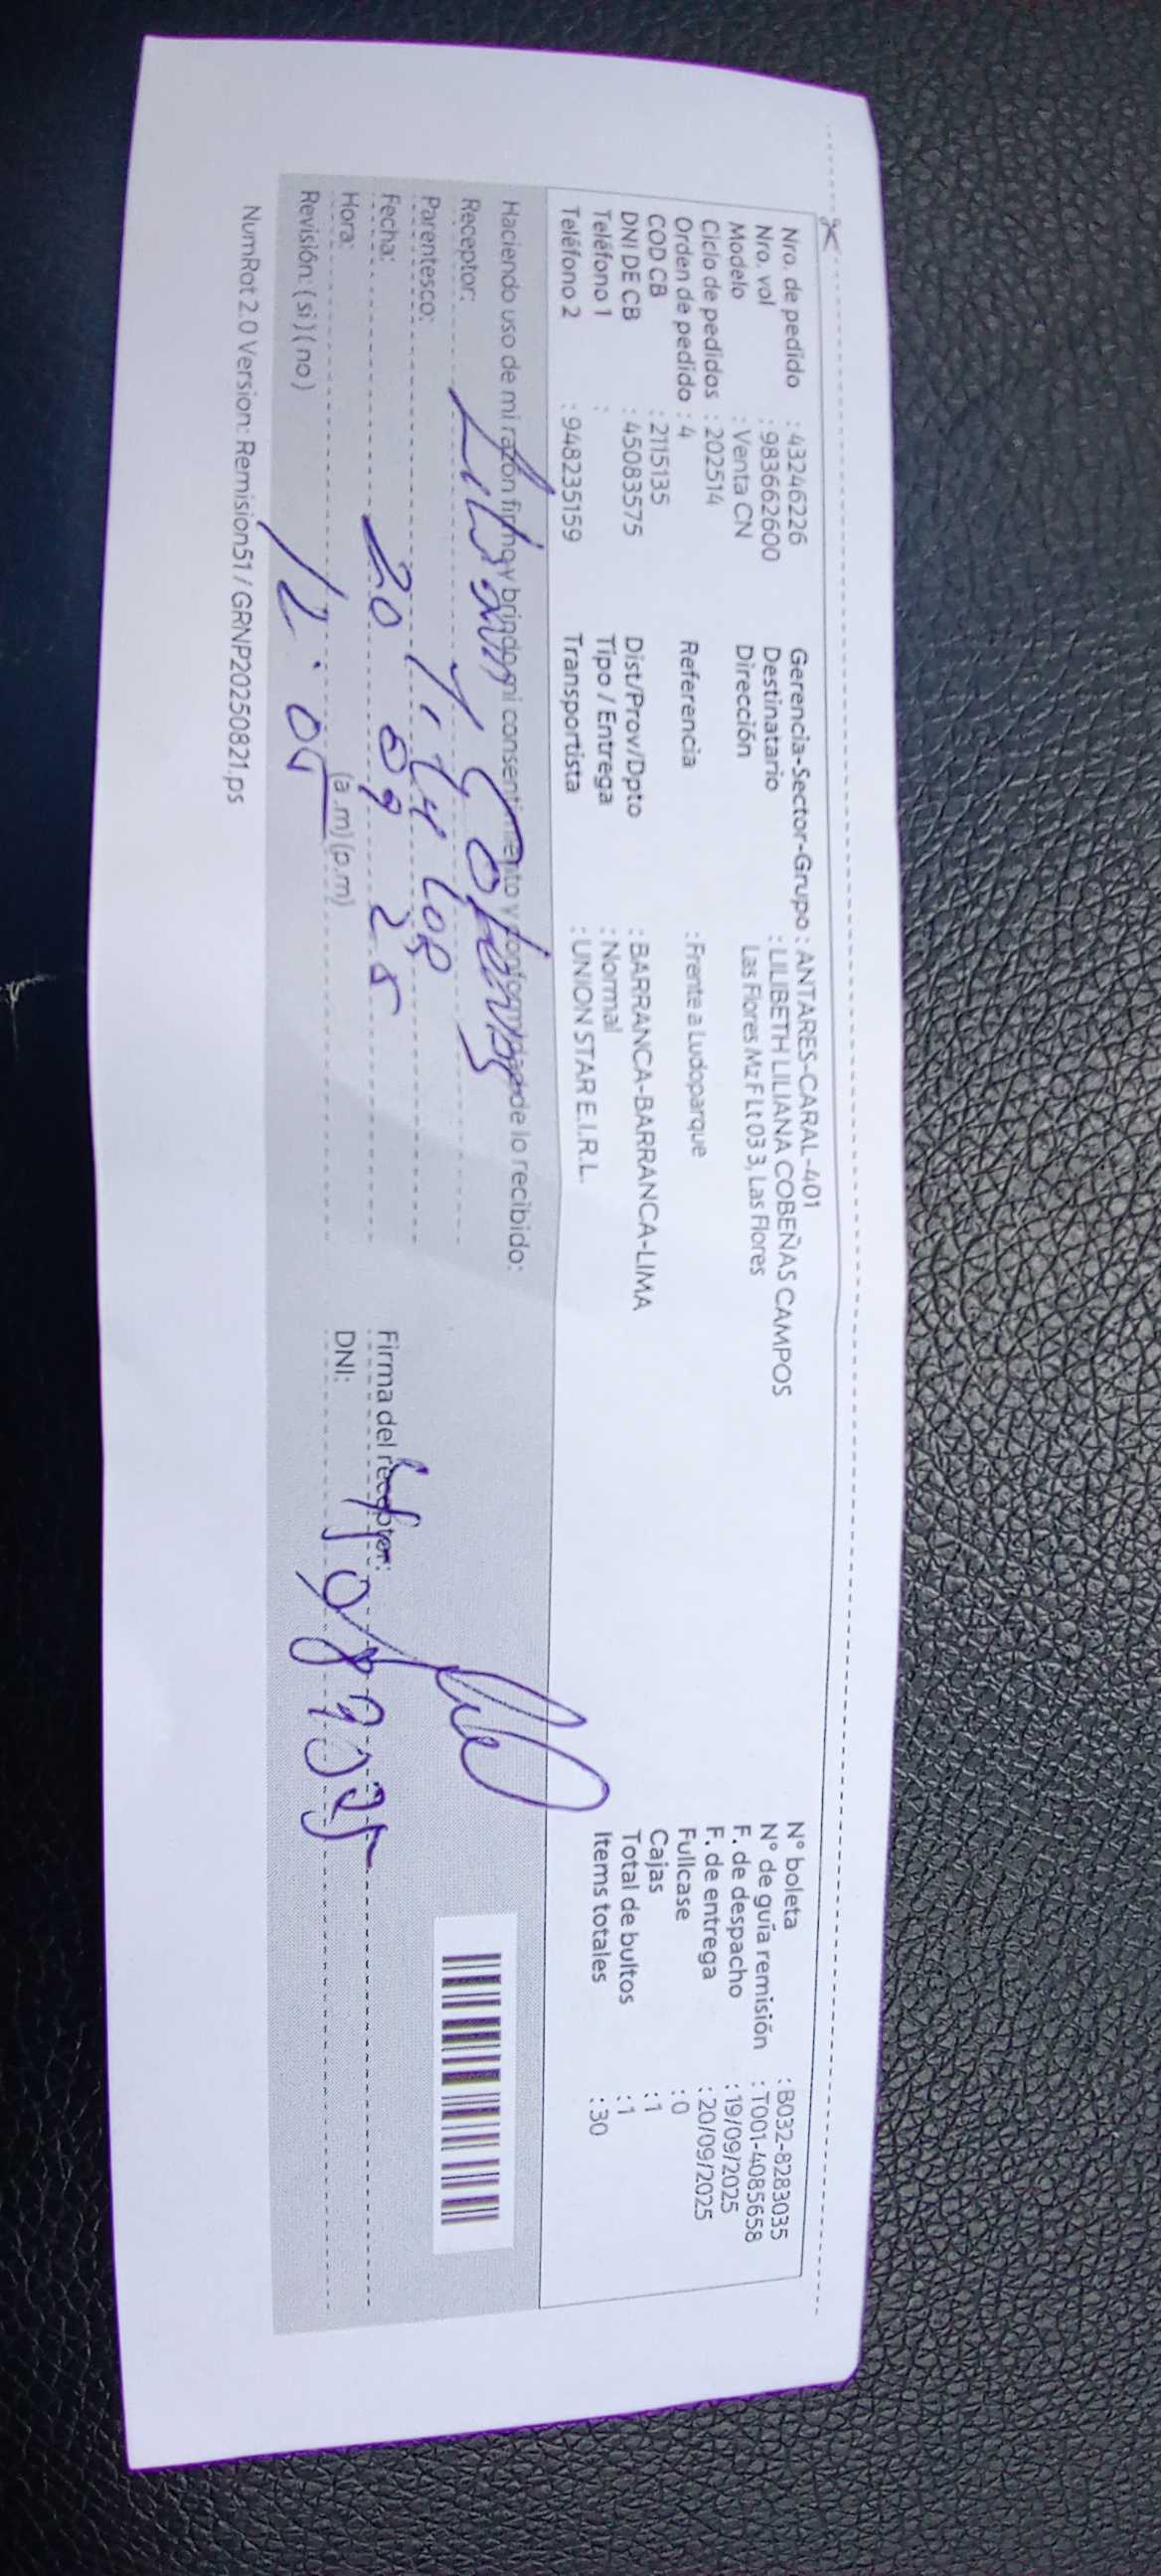 Nro. de pedido : 43246226
Nro. vol : 983662600
Modelo : Venta CN
Ciclo de pedidos : 202514
Orden de pedido : 4
COD CB : 2115135
DNI DE CB : 45083575
Teléfono 1 :
Teléfono 2 : 948235159
Gerencia-Sector-Grupo : ANTARES-CARAL-401
Destinatario : LILIBETH LILIANA COBEÑAS CAMPOS
Dirección Las Flores Mz F Lt 03 3, Las Flores
Referencia : Frente a Ludoparque
Dist/Prov/Dpto : BARRANCA-BARRANCA-LIMA
Tipo / Entrega : Normal
Transportista : UNION STAR E.I.R.L.
N° boleta : B032-8283035
N° de guía remisión : T001-4085658
F. de despacho : 19/09/2025
F. de entrega : 20/09/2025
Fullcase : 0
Cajas : 1
Total de bultos : 1
Items totales : 30
Haciendo uso de mi razón firmo y brindo mi consentimiento y conformidad de lo recibido:
Receptor: Liliana Cobeñas
Parentesco: Titular
Fecha: 20 09 25
Hora: 12:05 (a.m) (p.m)
Revisión: (si) (no)
Firma del receptor:
DNI:
NumRot 2.0 Version: Remision51 / GRNP20250821.ps